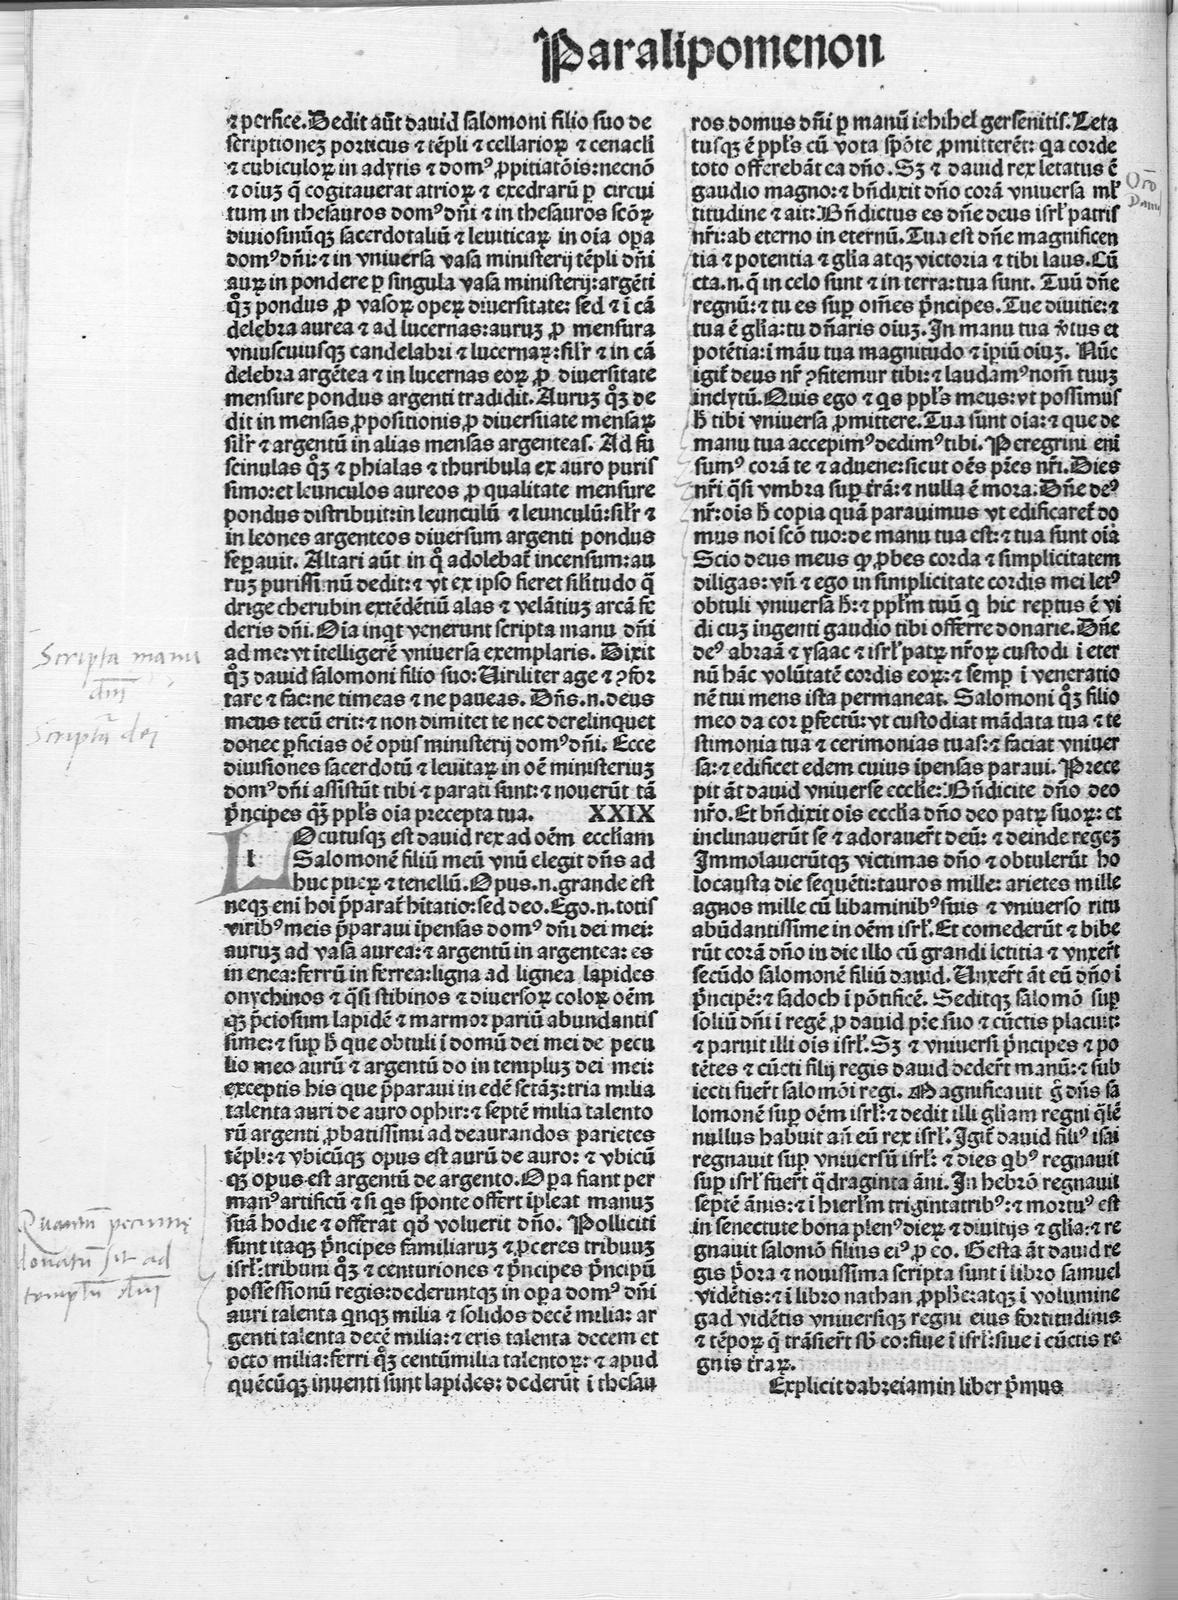 Paralipomenon
⁊ perfice. Dedit aūt dauid salomoni filio suo de
scriptioneꝫ porticus ⁊ tēpli ⁊ cellarioꝝ ⁊ cenacli
⁊ cubiculoꝝ in adytis ⁊ domꝰ ꝓpitiatōis: necnō
⁊ oiuꝫ q̄ cogitauerat atrioꝝ ⁊ exedrarū ꝑ circui
tum in thesauros domꝰ dn̄i ⁊ in thesauros scōꝝ
diuiosinūqꝫ sacerdotaliū ⁊ leuiticaꝝ in oīa oꝑa
domꝰ dn̄i: ⁊ in vniuersa vasa ministerij tēpli dn̄i
auꝝ in pondere ꝑ singula vasa ministerij: argēti
qͦꝫ pondus ꝓ vasoꝝ opeꝝ diuersitate: sed ⁊ ī cā
delebra aurea ⁊ ad lucernas: auruꝫ ꝓ mensura
vniuscuiusqꝫ candelabri ⁊ lucernaꝝ: sil'r ⁊ in cā
delebra argētea ⁊ in lucernas eoꝝ ꝓ diuersitate
mensure pondus argenti tradidit. Auruꝫ qͦꝫ de
dit in mensas ꝓpositionis ꝓ diuersitate mensaꝝ
sil'r ⁊ argentū in alias mensas argenteas. Ad fu
scinulas qͦꝫ ⁊ phialas ⁊ thuribula ex auro puris
simo: et leunculos aureos ꝓ qualitate mensure
pondus distribuit: in leunculū ⁊ leunculū: sil'r ⁊
in leones argenteos diuersum argenti pondus
seꝑauit. Altari aūt in qͦ adolebat̄ incensum: au
ruꝫ purissinū dedit: ⁊ vt ex ipso fieret silitudo q̄
drige cherubin extēdētiū alas ⁊ velātiuꝫ arcā fe
deris dn̄i. Oīa inqͥt venerunt scripta manu dn̄i
ad me: vt ītelligerē vniuersa exemplaris. Dixit
qͦꝫ dauid salomoni filio suo: Uiriliter age ⁊ ꝯfor
tare ⁊ fac: ne timeas ⁊ ne paueas. Dn̄s .n. deus
meus tecū erit: ⁊ non dimitet te nec derelinquet
donec ꝑficias oē opus ministerij domꝰ dn̄i. Ecce
diuisiones sacerdotū ⁊ leuitaꝝ in oē ministeriuꝫ
domꝰ dn̄i assistūt tibi ⁊ parati sunt: ⁊ nouerūt tā
p̄ncipes qꝫ ppl's oīa precepta tua. XXIX
LOcutusqꝫ est dauid rex ad oēm ecclīam
l Salomonē filiū meū vnū elegit dn̄s ad
huc pueꝝ ⁊ tenellū. Opus .n. grande est
neqꝫ enī hoī p̄parat̄ hītatio: sed deo. Ego .n. totis
viribꝰ meis p̄paraui īpensas domꝰ dn̄i dei mei:
auruꝫ ad vasa aurea: ⁊ argentū in argentea: es
in enea: ferrū in ferrea: ligna ad lignea lapides
onychinos ⁊ q̄si stibinos ⁊ diuersoꝝ coloꝝ oēm
qꝫ p̄ciosum lapidē ⁊ marmor pariū abundantis
sime: ⁊ suꝑ h̄ que obtuli ī domū dei mei de pecu
lio meo aurū ⁊ argentū do in templuꝫ dei mei:
exceptis his que p̄paraui in edē sctāꝫ: tria milia
talenta auri de auro ophir: ⁊ septē milia talento
rū argenti ꝓbatissimi ad deaurandos parietes
tēpli: ⁊ vbicūqꝫ opus est aurū de auro: ⁊ vbicū
qꝫ opus est argentū de argento. Oꝑa fiant per
manꝰ artificū ⁊ si qͥs sponte offert īpleat manuꝫ
suā hodie ⁊ offerat qd̄ voluerit dn̄o. Polliciti
sunt itaqꝫ p̄ncipes familiaruꝫ ⁊ ꝓceres tribuuꝫ
isrl': tribuni qͦꝫ ⁊ centuriones ⁊ p̄ncipes p̄ncipū
possessionū regis: dederuntqꝫ in oꝑa domꝰ dn̄i
auri talenta qͥnqꝫ milia ⁊ solidos decē milia: ar
genti talenta decē milia: ⁊ eris talenta decem et
octo milia: ferri qͦꝫ centūmilia talentoꝝ: ⁊ apud
quēcūqꝫ inuenti sunt lapides: dederūt ī thesau
ros domus dn̄i ꝑ manū iehihel gersenitis. Leta
tusqꝫ ē ppl's cū vota spōte ꝓmitterēt: qa corde
toto offerebāt ea dn̄o. Sꝫ ⁊ dauid rex letatus ē
gaudio magno: ⁊ bn̄dixit dn̄o corā vniuersa ml'
titudine ⁊ ait: Bn̄dictus es dn̄e deus isrl' patris
nr̄i: ab eterno in eternū. Tua est dn̄e magnificen
tia ⁊ potentia ⁊ glīa atqꝫ victoria ⁊ tibi laus. Cū
cta .n. q̄ in celo sunt ⁊ in terra: tua sunt. Tuū dn̄e
regnū: ⁊ tu es suꝑ om̄es p̄ncipes. Tue diuitie: ⁊
tua ē glīa: tu dn̄aris oiuꝫ. In manu tua v̄tus et
potētia: ī māu tua magnitudo ⁊ īpiū oiuꝫ. Nūc
igit̄ deus nr̄ ꝯfitemur tibi: ⁊ laudamꝰ nom̄ tuuꝫ
inclytū. Quis ego ⁊ qͥs ppl's meus: vt possimus
h̄ tibi vniuersa ꝓmittere. Tua sunt oīa: ⁊ que de
manu tua accepimꝰ dedimꝰ tibi. Peregrini enī
sumꝰ corā te ⁊ aduene: sicut oēs pr̄es nr̄i. Dies
nr̄i q̄si vmbra suꝑ tr̄ā: ⁊ nulla ē mora. Dn̄e deꝰ
nr̄: oīs h̄ copia quā parauimus vt edificaret̄ do
mus noī scō tuo: de manu tua est: ⁊ tua sunt oīa
Scio deus meus ꝙ ꝓbes corda ⁊ simplicitatem
diligas: vn̄ ⁊ ego in simplicitate cordis mei letꝰ
obtuli vniuersa h̄: ⁊ ppl'm tuū q̄ hic reptus ē vi
di cuꝫ ingenti gaudio tibi offerre donarie. Dn̄e
deꝰ abraā ⁊ ysaac ⁊ isrl' patꝝ nr̄oꝝ custodi ī eter
nū hāc volūtatē cordis eoꝝ: ⁊ semꝑ ī veneratio
nē tui mens ista permaneat. Salomoni qͦꝫ filio
meo da cor ꝑfectū: vt custodiat mādata tua ⁊ te
stimonia tua ⁊ cerimonias tuas: ⁊ faciat vniuer
sa: ⁊ edificet edem cuius īpensas paraui. Prece
pit āt dauid vniuerse ecclie: Bn̄dicite dn̄o deo
nr̄o. Et bn̄dixit oīs ecclīa dn̄o deo patꝝ suoꝝ: et
inclinauerūt se ⁊ adorauer̄t deū: ⁊ deinde regeꝫ
Immolauerūtqꝫ victimas dn̄o ⁊ obtulerūt ho
locausta die sequēti: tauros mille: arietes mille
agnos mille cū libaminibꝰ suis ⁊ vniuerso ritu
abūdantissime in oēm isrl'. Et comederūt ⁊ bibe
rūt corā dn̄o in die illo cū grandi letitia ⁊ vnxer̄t
secūdo salomonē filiū dauid. Unxer̄t āt eū dn̄o ī
p̄ncipē: ⁊ sadoch ī pōtificē. Seditqꝫ salomō suꝑ
soliū dn̄i ī regē ꝓ dauid pr̄e suo ⁊ cūctis placuit:
⁊ paruit illi oīs isrl'. Sꝫ ⁊ vniuersi p̄ncipes ⁊ po
tētes ⁊ cūcti filij regis dauid deder̄t manū: ⁊ sub
iecti fuer̄t salomōi regi. Magnificauit g̊ dn̄s sa
lomonē suꝑ oēm isrl': ⁊ dedit illi gliam regni q̄lē
nullus habuit an̄ eū rex isrl'. Igit̄ dauid filiꝰ isai
regnauit suꝑ vniuersū isrl': ⁊ dies qͥbꝰ regnauit
suꝑ isrl' fuer̄t q̄draginta āni. In hebrō regnauit
septē ānis: ⁊ ī hierl'm trigintatribꝰ: ⁊ mortuꝰ est
in senectute bona plenꝰ dieꝝ ⁊ diuitijs ⁊ glīa: ⁊ re
gnauit salomō filius eiꝰ ꝓ eo. Gesta āt dauid re
gis p̄ora ⁊ nouissima scripta sunt ī libro samuel
vidētis: ⁊ ī libro nathan ꝓphe: atqꝫ ī volumine
gad vidētis vniuersiqꝫ regni eius fortitudinis
⁊ tēpoꝝ q̄ trāsier̄t sb̄ eo: siue ī isrl': siue ī cūctis re
gnis tr̄aꝝ.
Explicit dabreiamin liber p̄mus
Scripta manu
dni
Scripta dei
Quantū pecunię
donatū sit ad
templū dni
Orō